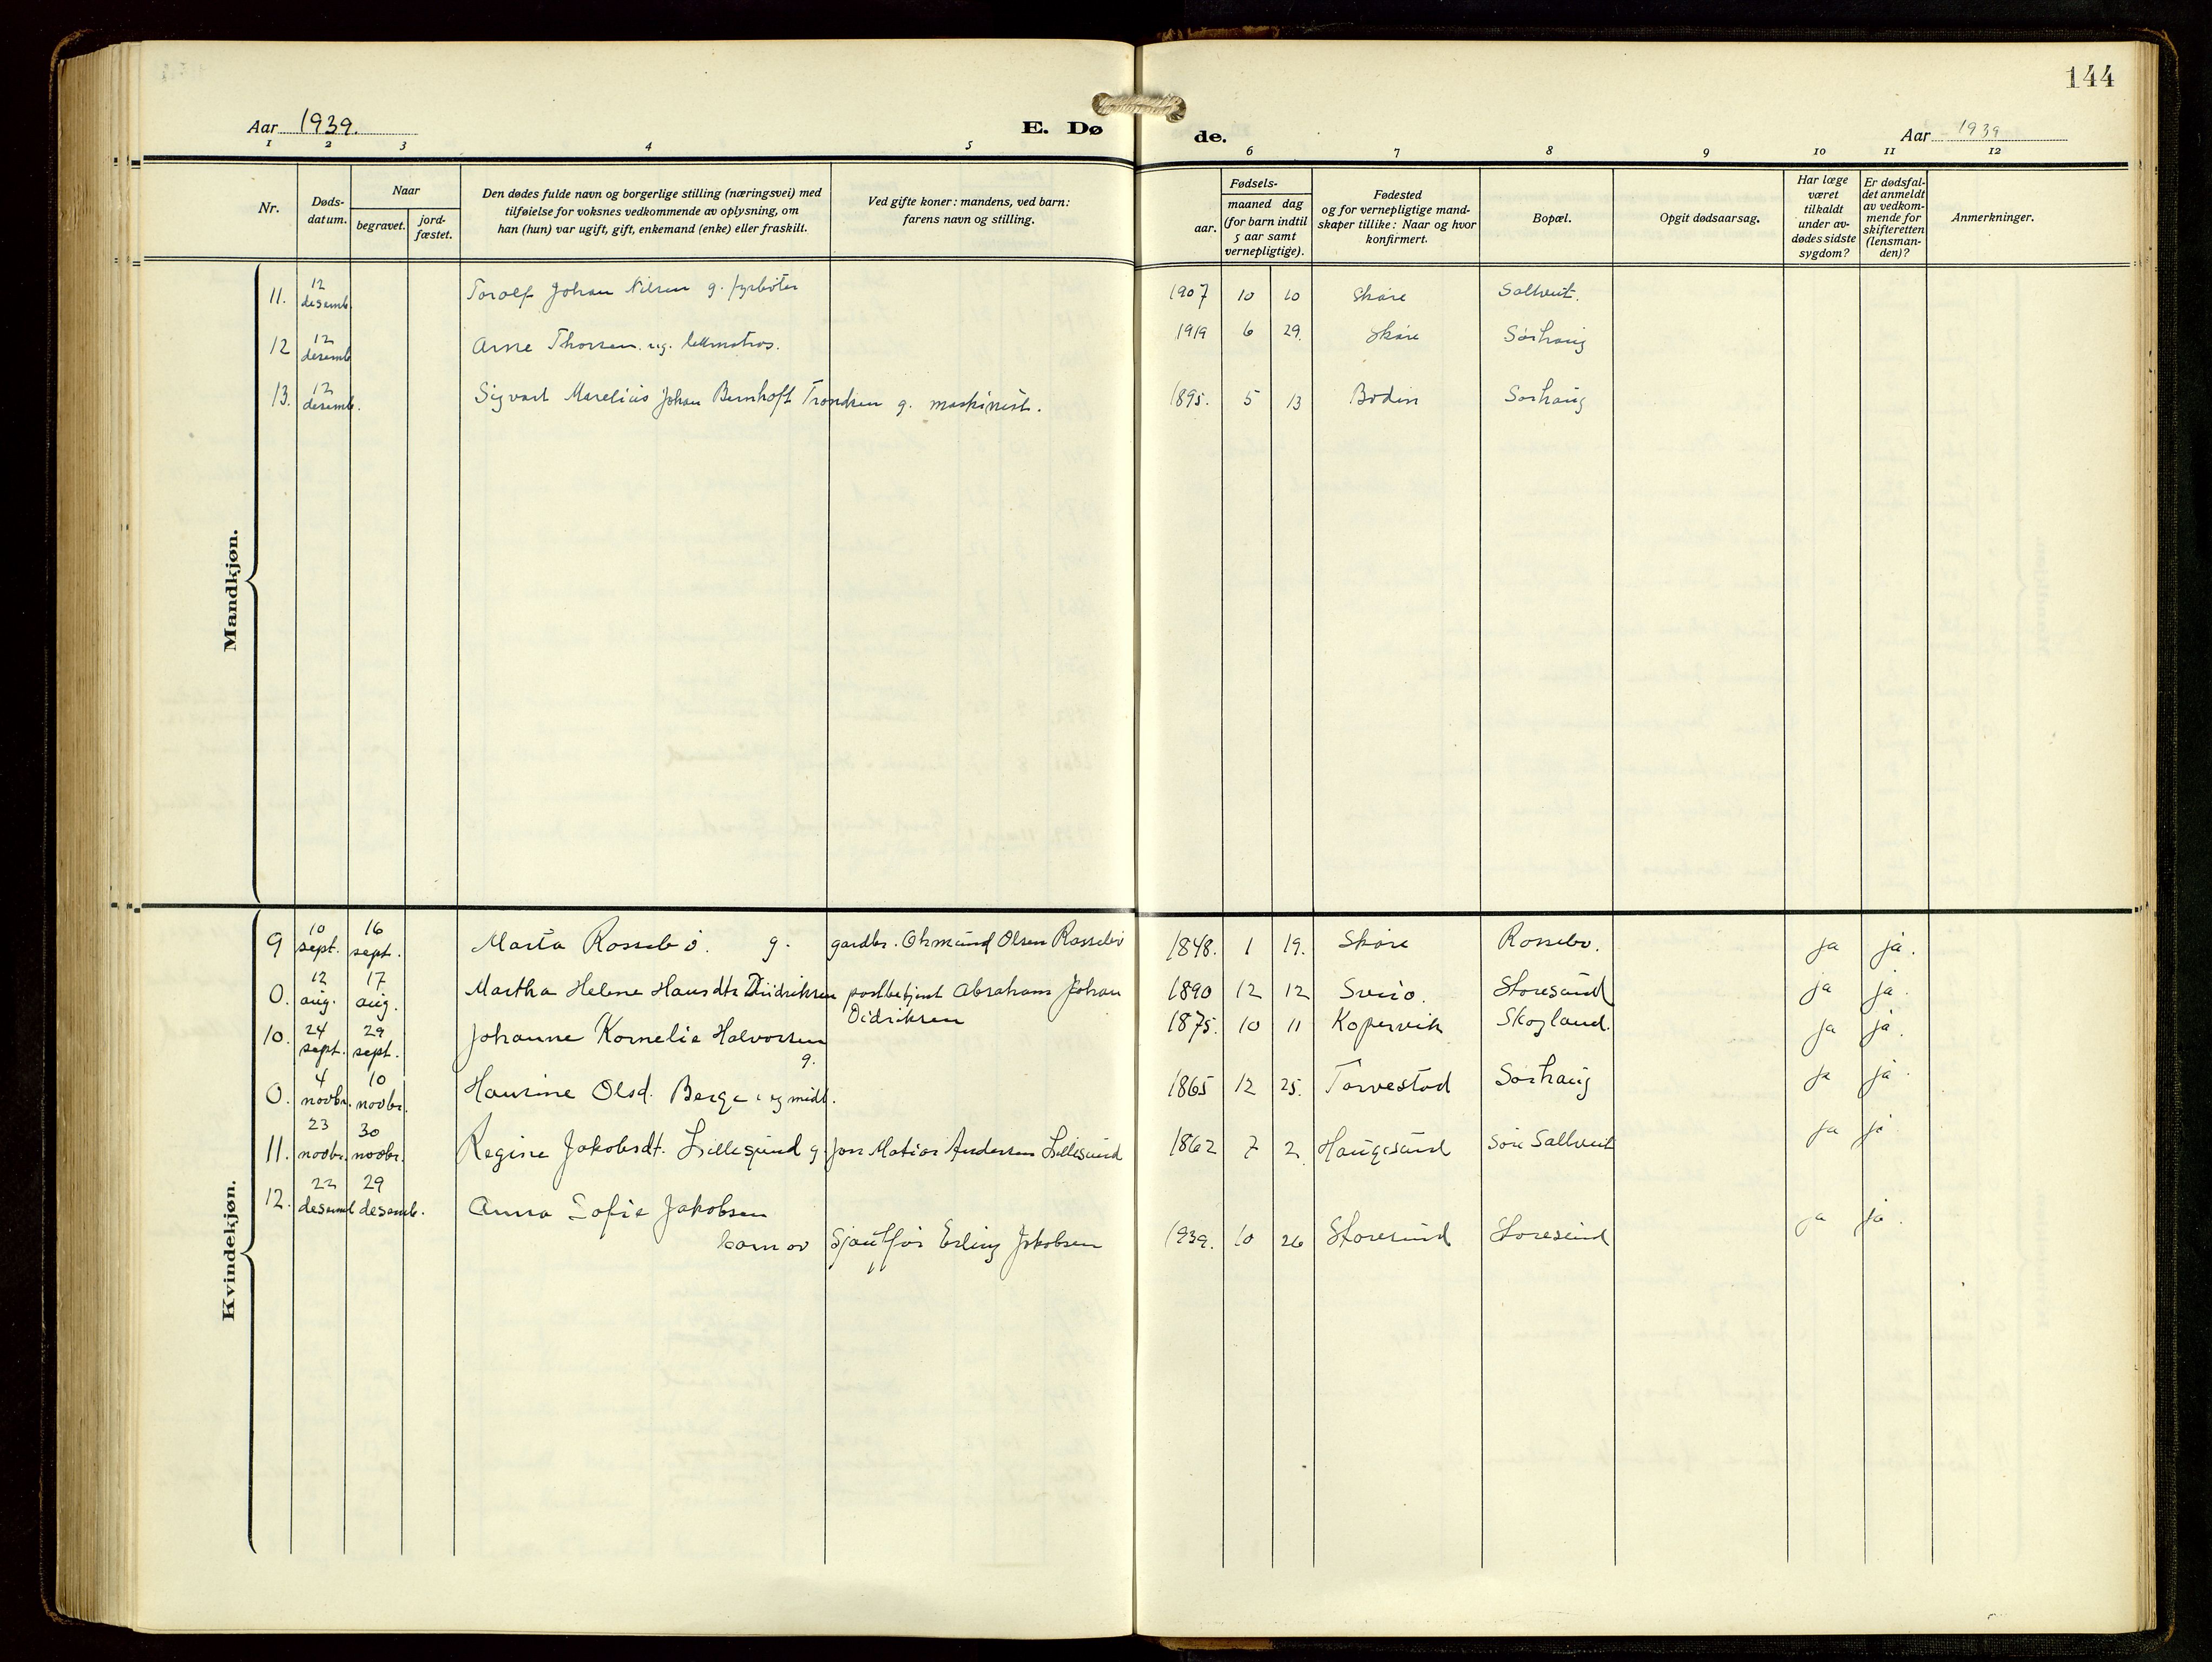 144
Aar 1939. E. Dø de. Aar 1939
1 2 3 4 5 6 7 8 9 10 11 12
Nr.
Døds-
datum.
Naar
begravet.
jord-
fæstet.
Den dødes fulde navn og borgerlige stilling (næringsvei) med
tilføielse for voksnes vedkommende av oplysning, om
han (hun) var ugift, gift, enkemand (enke) eller fraskilt.
Ved gifte koner: mandens, ved barn:
farens navn og stilling.
Fødsels-
aar.
maaned dag
(for barn indtil
5 aar samt
vernepligtige).
Fødested
og for vernepligtige mand-
skaper tillike: Naar og hvor
konfirmert.
Bopæl.
Opgit dødsaarsag.
Har læge
været
tilkaldt
under av-
dødes sidste
sygdom?
Er dødsfal-
det anmeldt
av vedkom-
mende for
skifteretten
(lensman-
den)?
Anmerkninger.
Mandkjøn.
11. 12 desemb. Torolf Johan Nilsen g. fyrbøter 1907 10 10 Skåre Saltveit.
12 12 desemb Arne Thorsen. ug. lettmatros. 1919 6 29. Skåre Sørhaug
13. 12 desemb. Sigvart Marelius Johan Bernhoft Trondsen g. maskinist. 1895. 5 13 Bodin Sørhaug
Kvindekjøn.
9 10 sept. 16 sept. Marta Rossebø. g. gardbr. Osmund Olsen Rossebø 1848. 1 19. Skåre Rossebø. ja ja.
0. 12 aug. 17 aug. Martha Helene Hansdtr Didriksen postbetjent Abraham Johan 1890 12 12 Sveio. Storesund ja ja.
Didriksen
10. 24 sept. 29 sept. Johanne Kornelie Halvorsen 1875. 10 11 Kopervik Skogland. ja ja.
g.
0. 4 novbr. 10 novbr. Olsd. Berge 1865 12 25. Torvestad Sørhaug ja ja.
11. 23 novbr. 30 novbr. Regine Jakobsdt. Lillesund g. Jon Matias Andersen Lillesund 1862 7 2. Haugesund Søre Saltveit ja ja
12. 22 desemb 29 desemb. Anna Sofie Jakobsen
barn av Erling Jakobsen 1939. 10 26 Storesund Storesund ja ja.